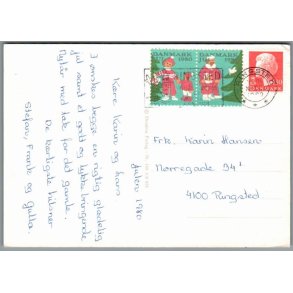 Julen 1980
Kære Karin og Hans
I ønskes begge en rigtig glædelig
jul samt et godt og lykkebringende
Nytår med tak for det gamle.
De kærligste hilsner
Stefan, Frank og Gulla.
DANMARK
1980
DANMARK
DANMARK
Frk. Karin Hansen
Nørregade 94¹
4100 Ringsted